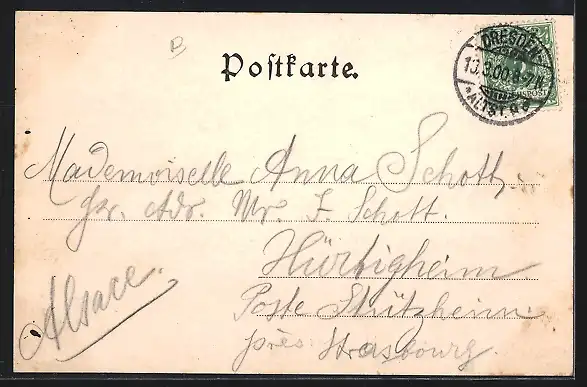 Postkarte.
DRESDEN
ALTST.
Mademoiselle Anna Schott,
pr. Adr. Mr. F. Schott.
Hürtigheim
Poste Stützheim
près Strasbourg.
Alsace.